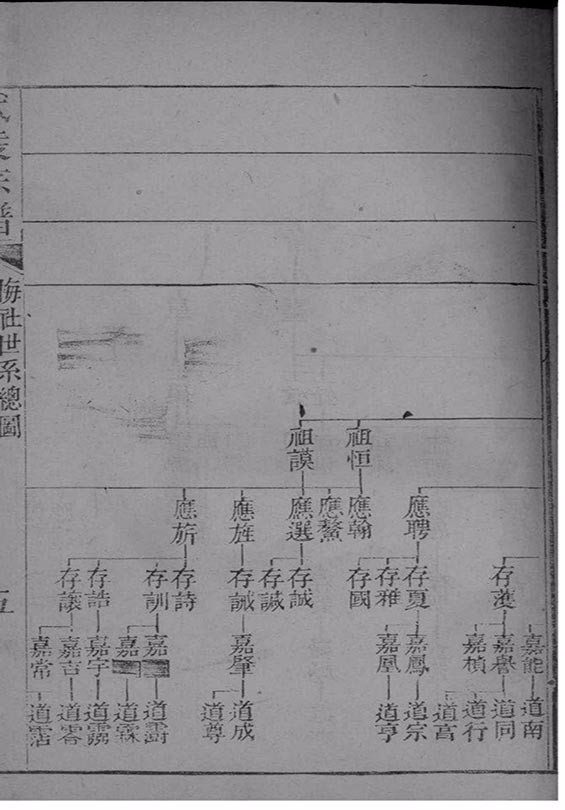 宗譜
梅社世系總圖
五
祖恒
祖謨
應聘
應翰
應鰲
應選
應旌
應旂
存濩
存夏
存雅
存國
存誠
存諴
存誡
存詩
存訓
存誥
存讓
嘉能
嘉譽
嘉楨
嘉鳳
嘉凰
嘉肇
嘉
嘉
嘉宇
嘉吉
嘉常
道南
道同
道行
道亨
道宗
道亨
道成
道尊
道霨
道霖
道霧
道零
道霑